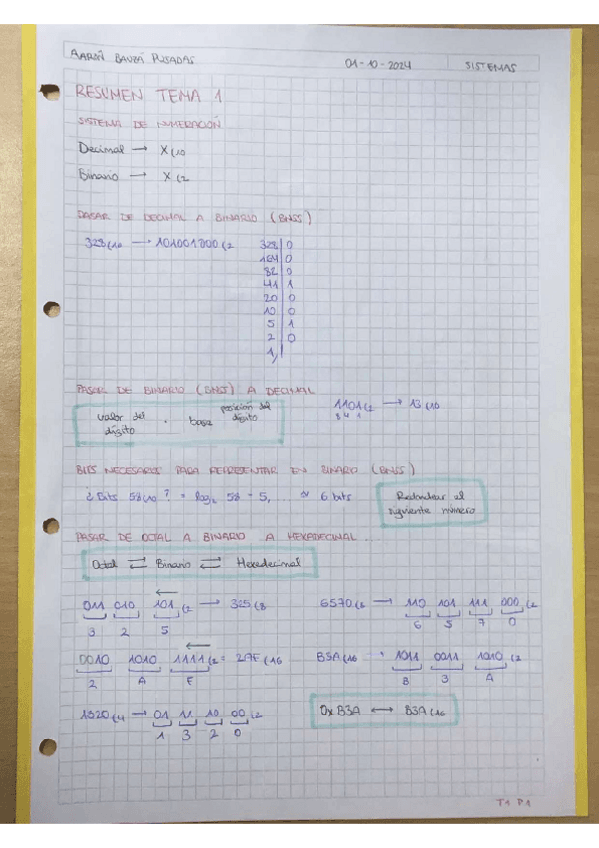 AARÓN BAUZÁ POSADAS 01-10-2024 SISTEMAS
RESUMEN TEMA 1
SISTEMA DE NUMERACIÓN
Decimal → X(10
Binario → X(2
PASAR DE DECIMAL A BINARIO (BNSS)
328(10 → 101001000(2
328 | 0
164 | 0
82 | 0
41 | 1
20 | 0
10 | 0
5 | 1
2 | 0
1
PASAR DE BINARIO (BNSS) A DECIMAL
valor del dígito · base posición del dígito
1101(2 → 13(10
8 4 1
BITS NECESARIOS PARA REPRESENTAR EN BINARIO (BNSS)
¿Bits 58(10? = log₂ 58 = 5, ... ≈ 6 bits
Redondear al
siguiente número
PASAR DE OCTAL A BINARIO A HEXADECIMAL
Octal ⇄ Binario ⇄ Hexadecimal
011 010 101(2 → 325(8
3 2 5
6570(8 → 110 101 111 000(2
6 5 7 0
0010 1010 1111(2 = 2AF(16
2 A F
B3A(16 → 1011 0011 1010(2
B 3 A
1320(4 → 01 11 10 00(2
1 3 2 0
0x B3A ↔ B3A(16
T1 P1